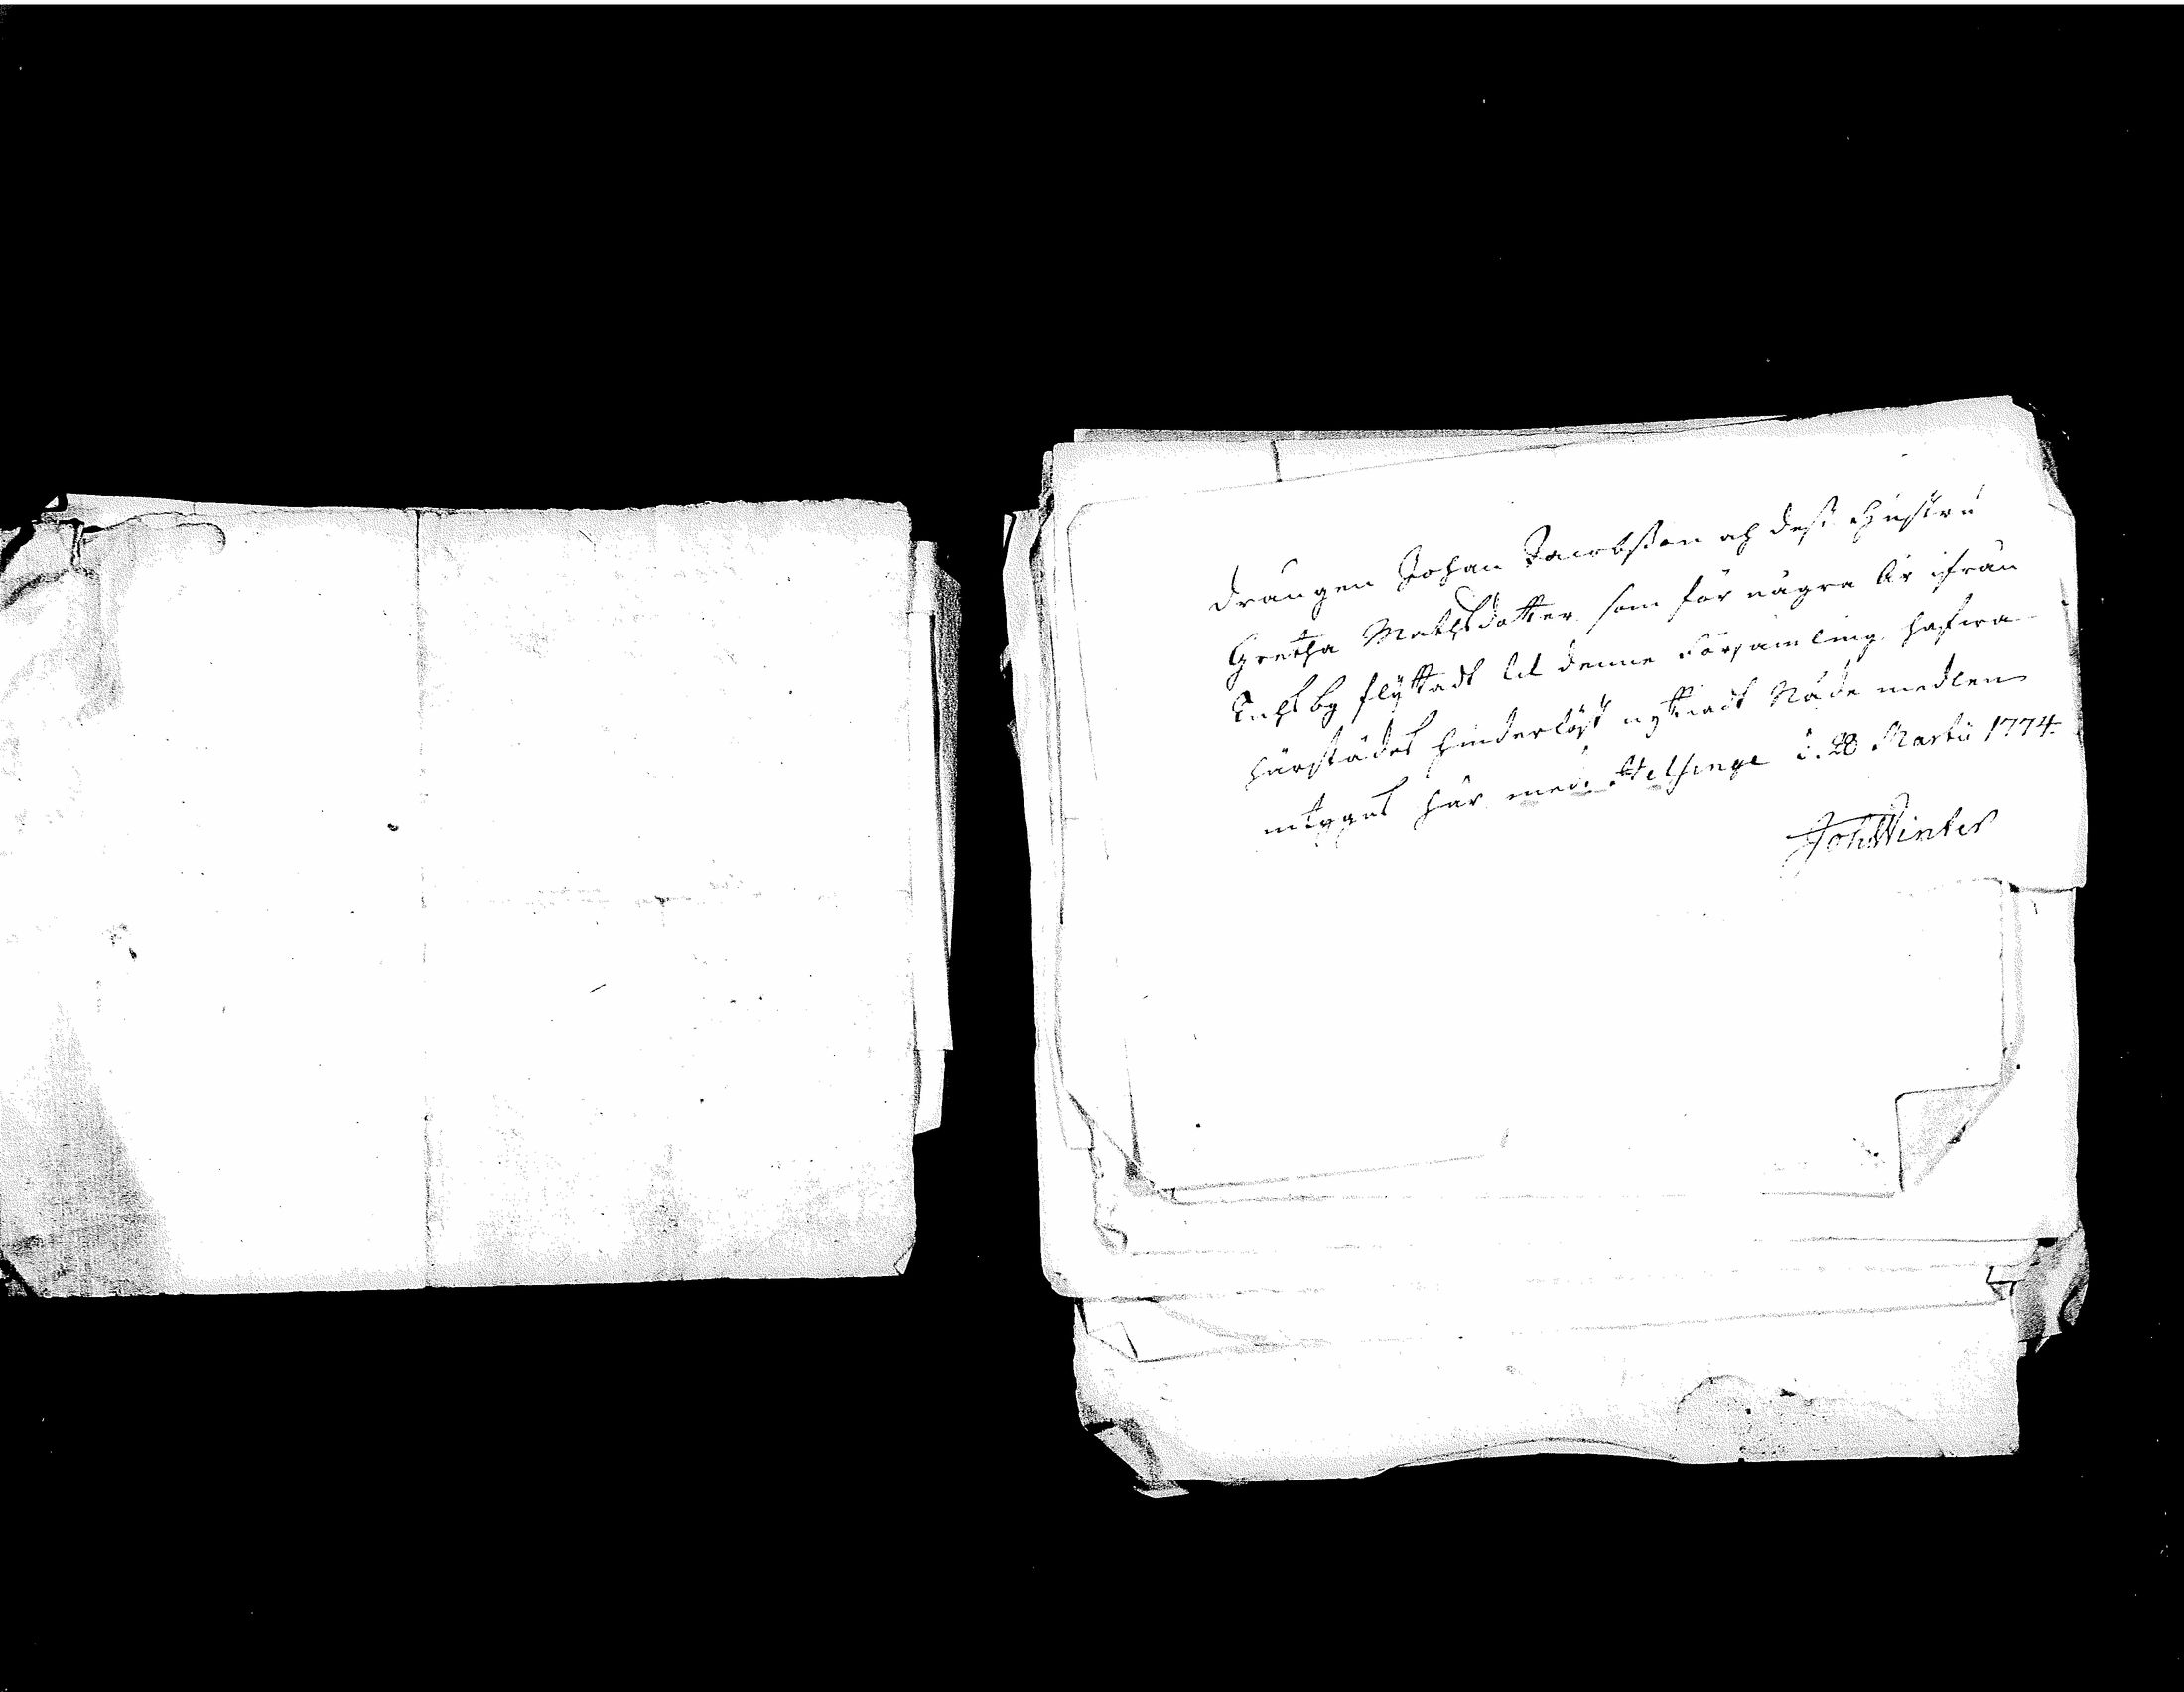 Drängen Johan Jacobsson och dess Hustru
Gretha Mathsdotter som för några År ifrån
by flyttadt til denne Församling hafwa
härstädes hinderlöst nyttiadt Nåde medlen
intygas här med. Helsinge d. 28 Martii 1774.
Joh Winter